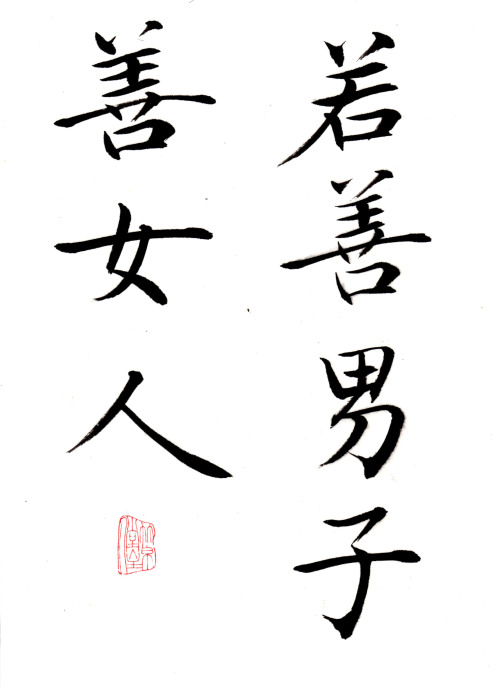 若善男子
善女人